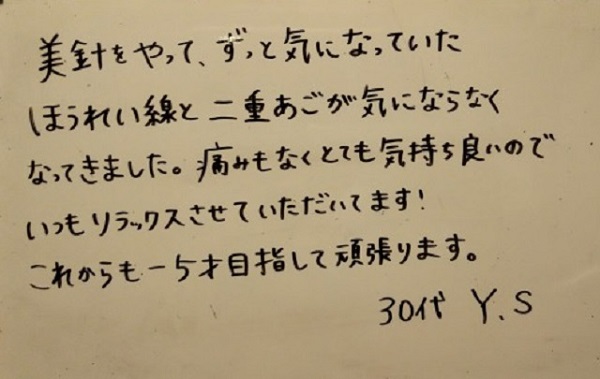 美針をやって、ずっと気になっていた
ほうれい線と二重あごが気にならなく
なってきました。痛みもなくとても気持ち良いので
いつもリラックスさせていただいてます!
これからも－5才目指して頑張ります。
30代 Y.S